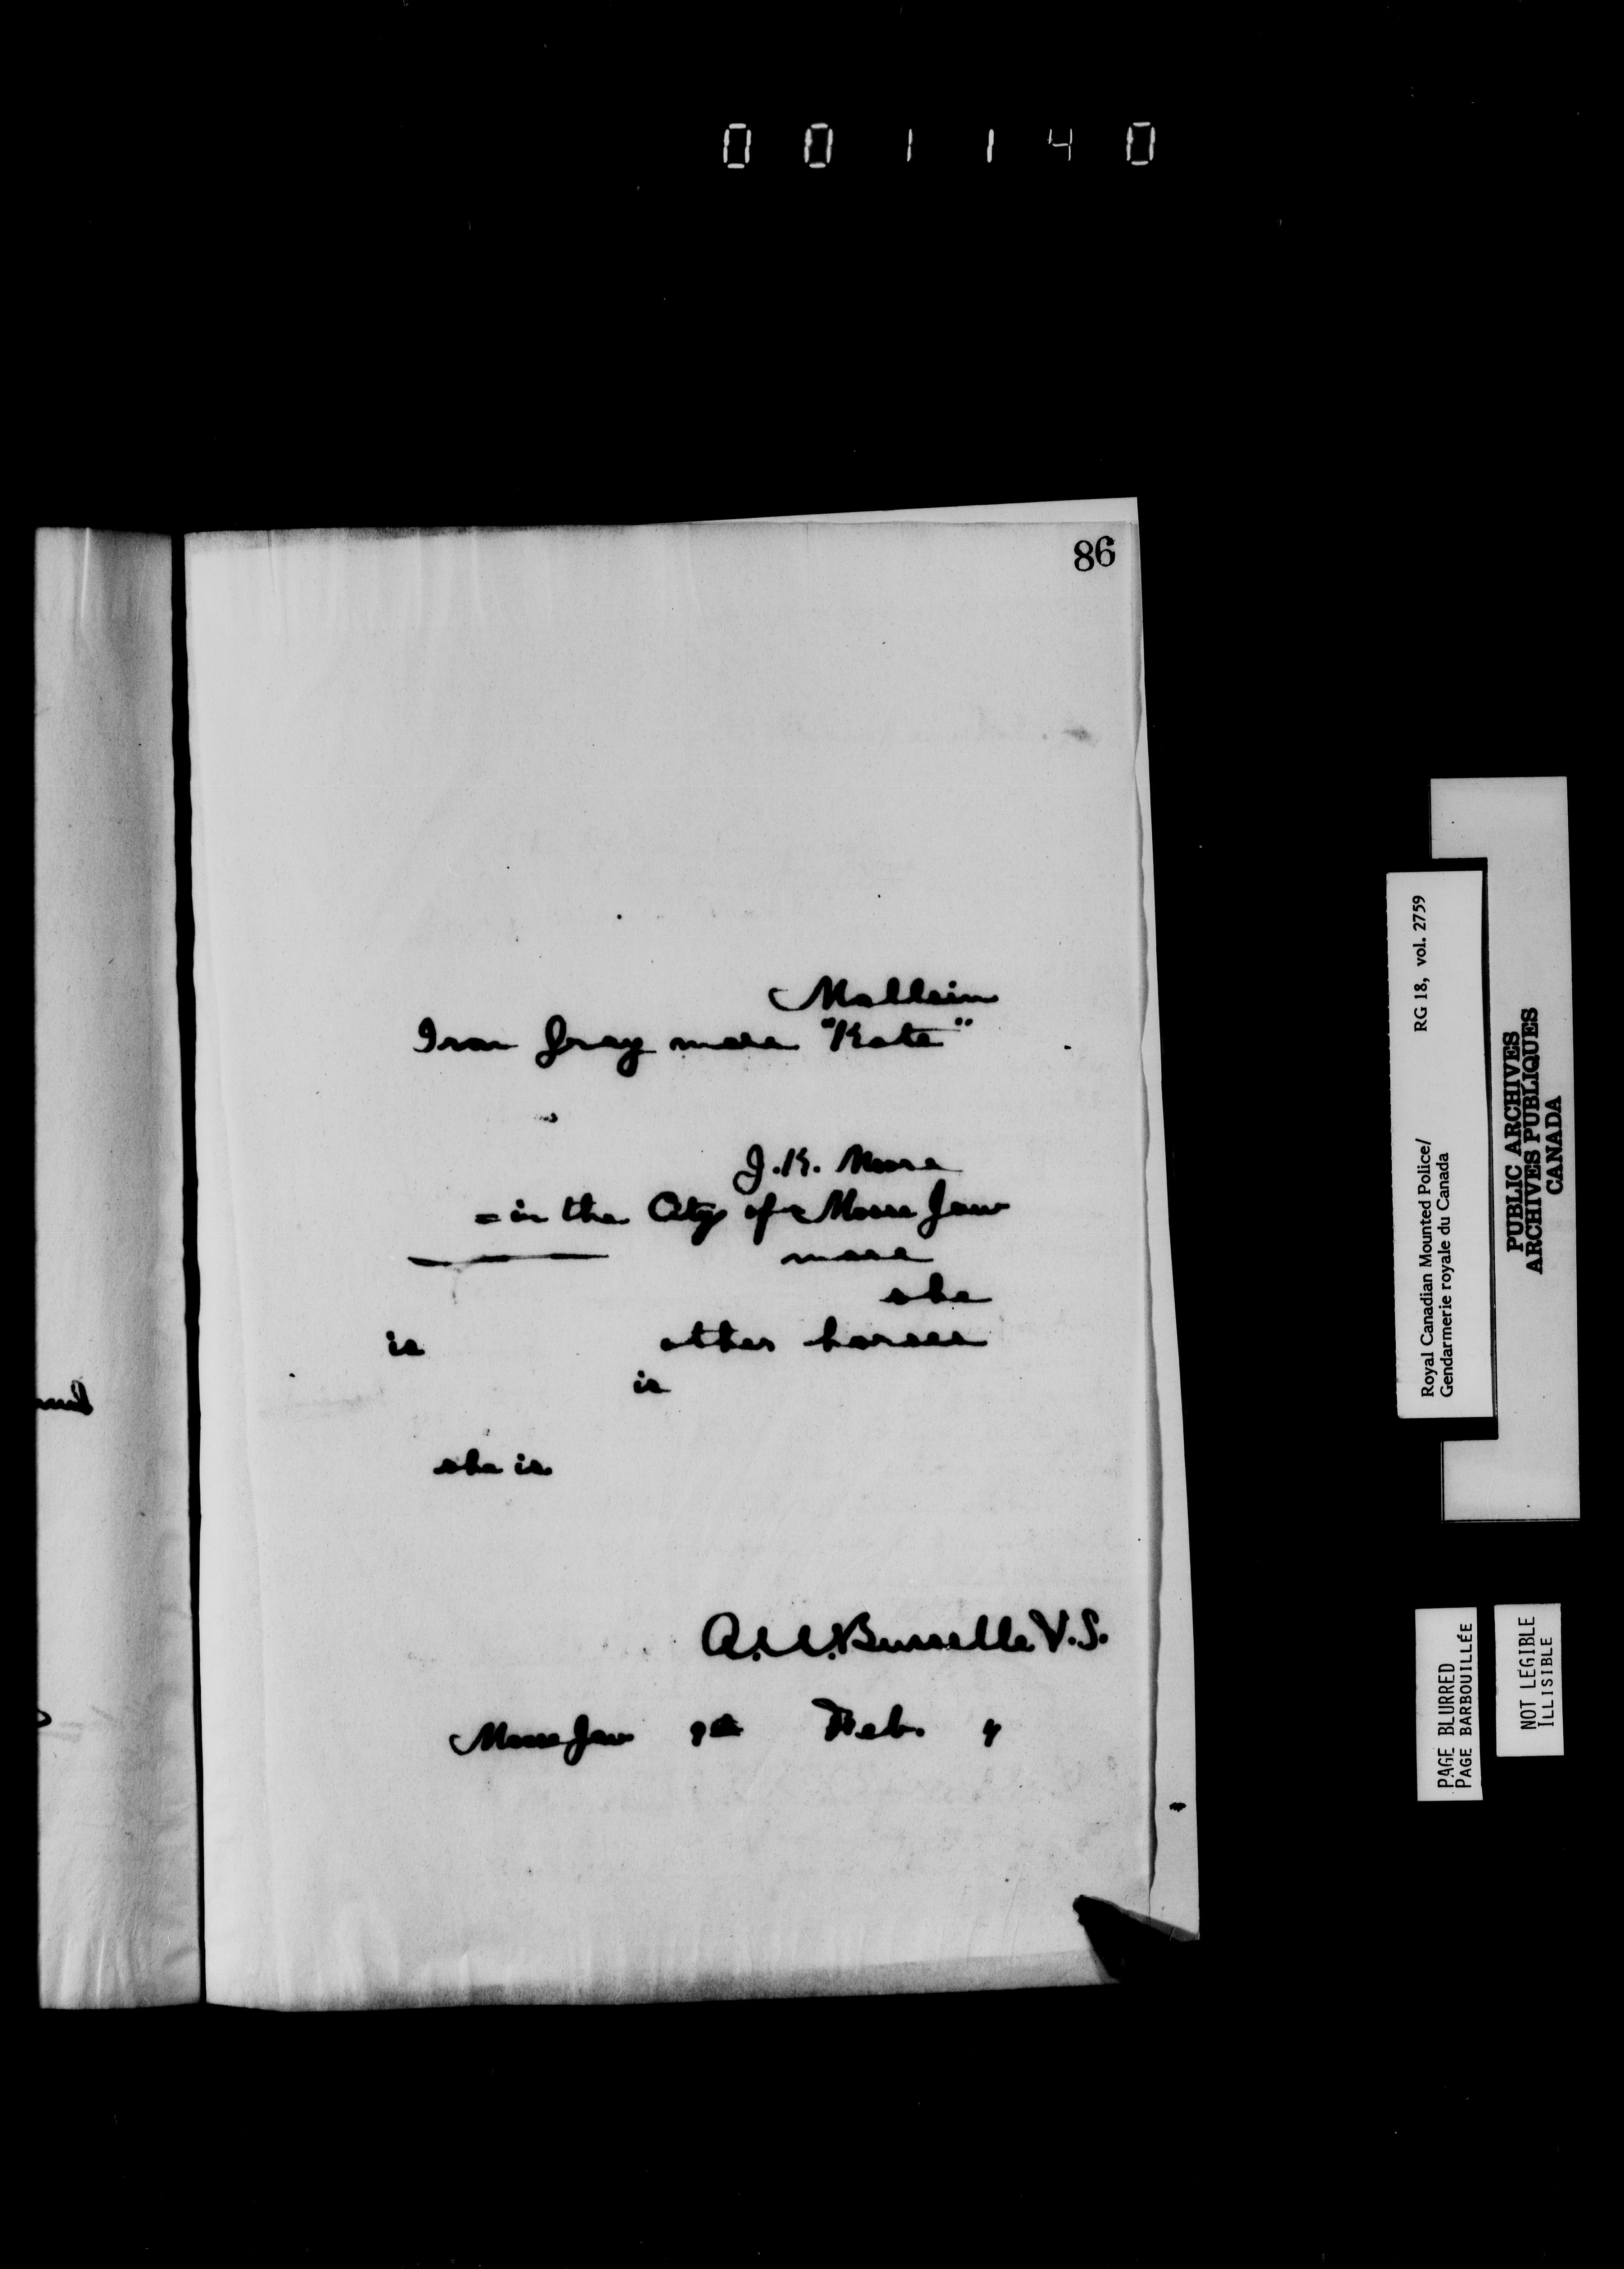 001140
86
Mallein
Iron Gray mare "Kate"
J. K. Moore
= in the City of Moose Jaw
mare
she
is other horses
is
she is
V.S.
Moose Jaw 9th Feb. 4
Royal Canadian Mounted Police/ RG 18, vol. 2759
Gendarmerie royale du Canada
PUBLIC ARCHIVES
ARCHIVES PUBLIQUES
CANADA
PAGE BLURRED
PAGE BARBOUILLÉE
NOT LEGIBLE
ILLISIBLE